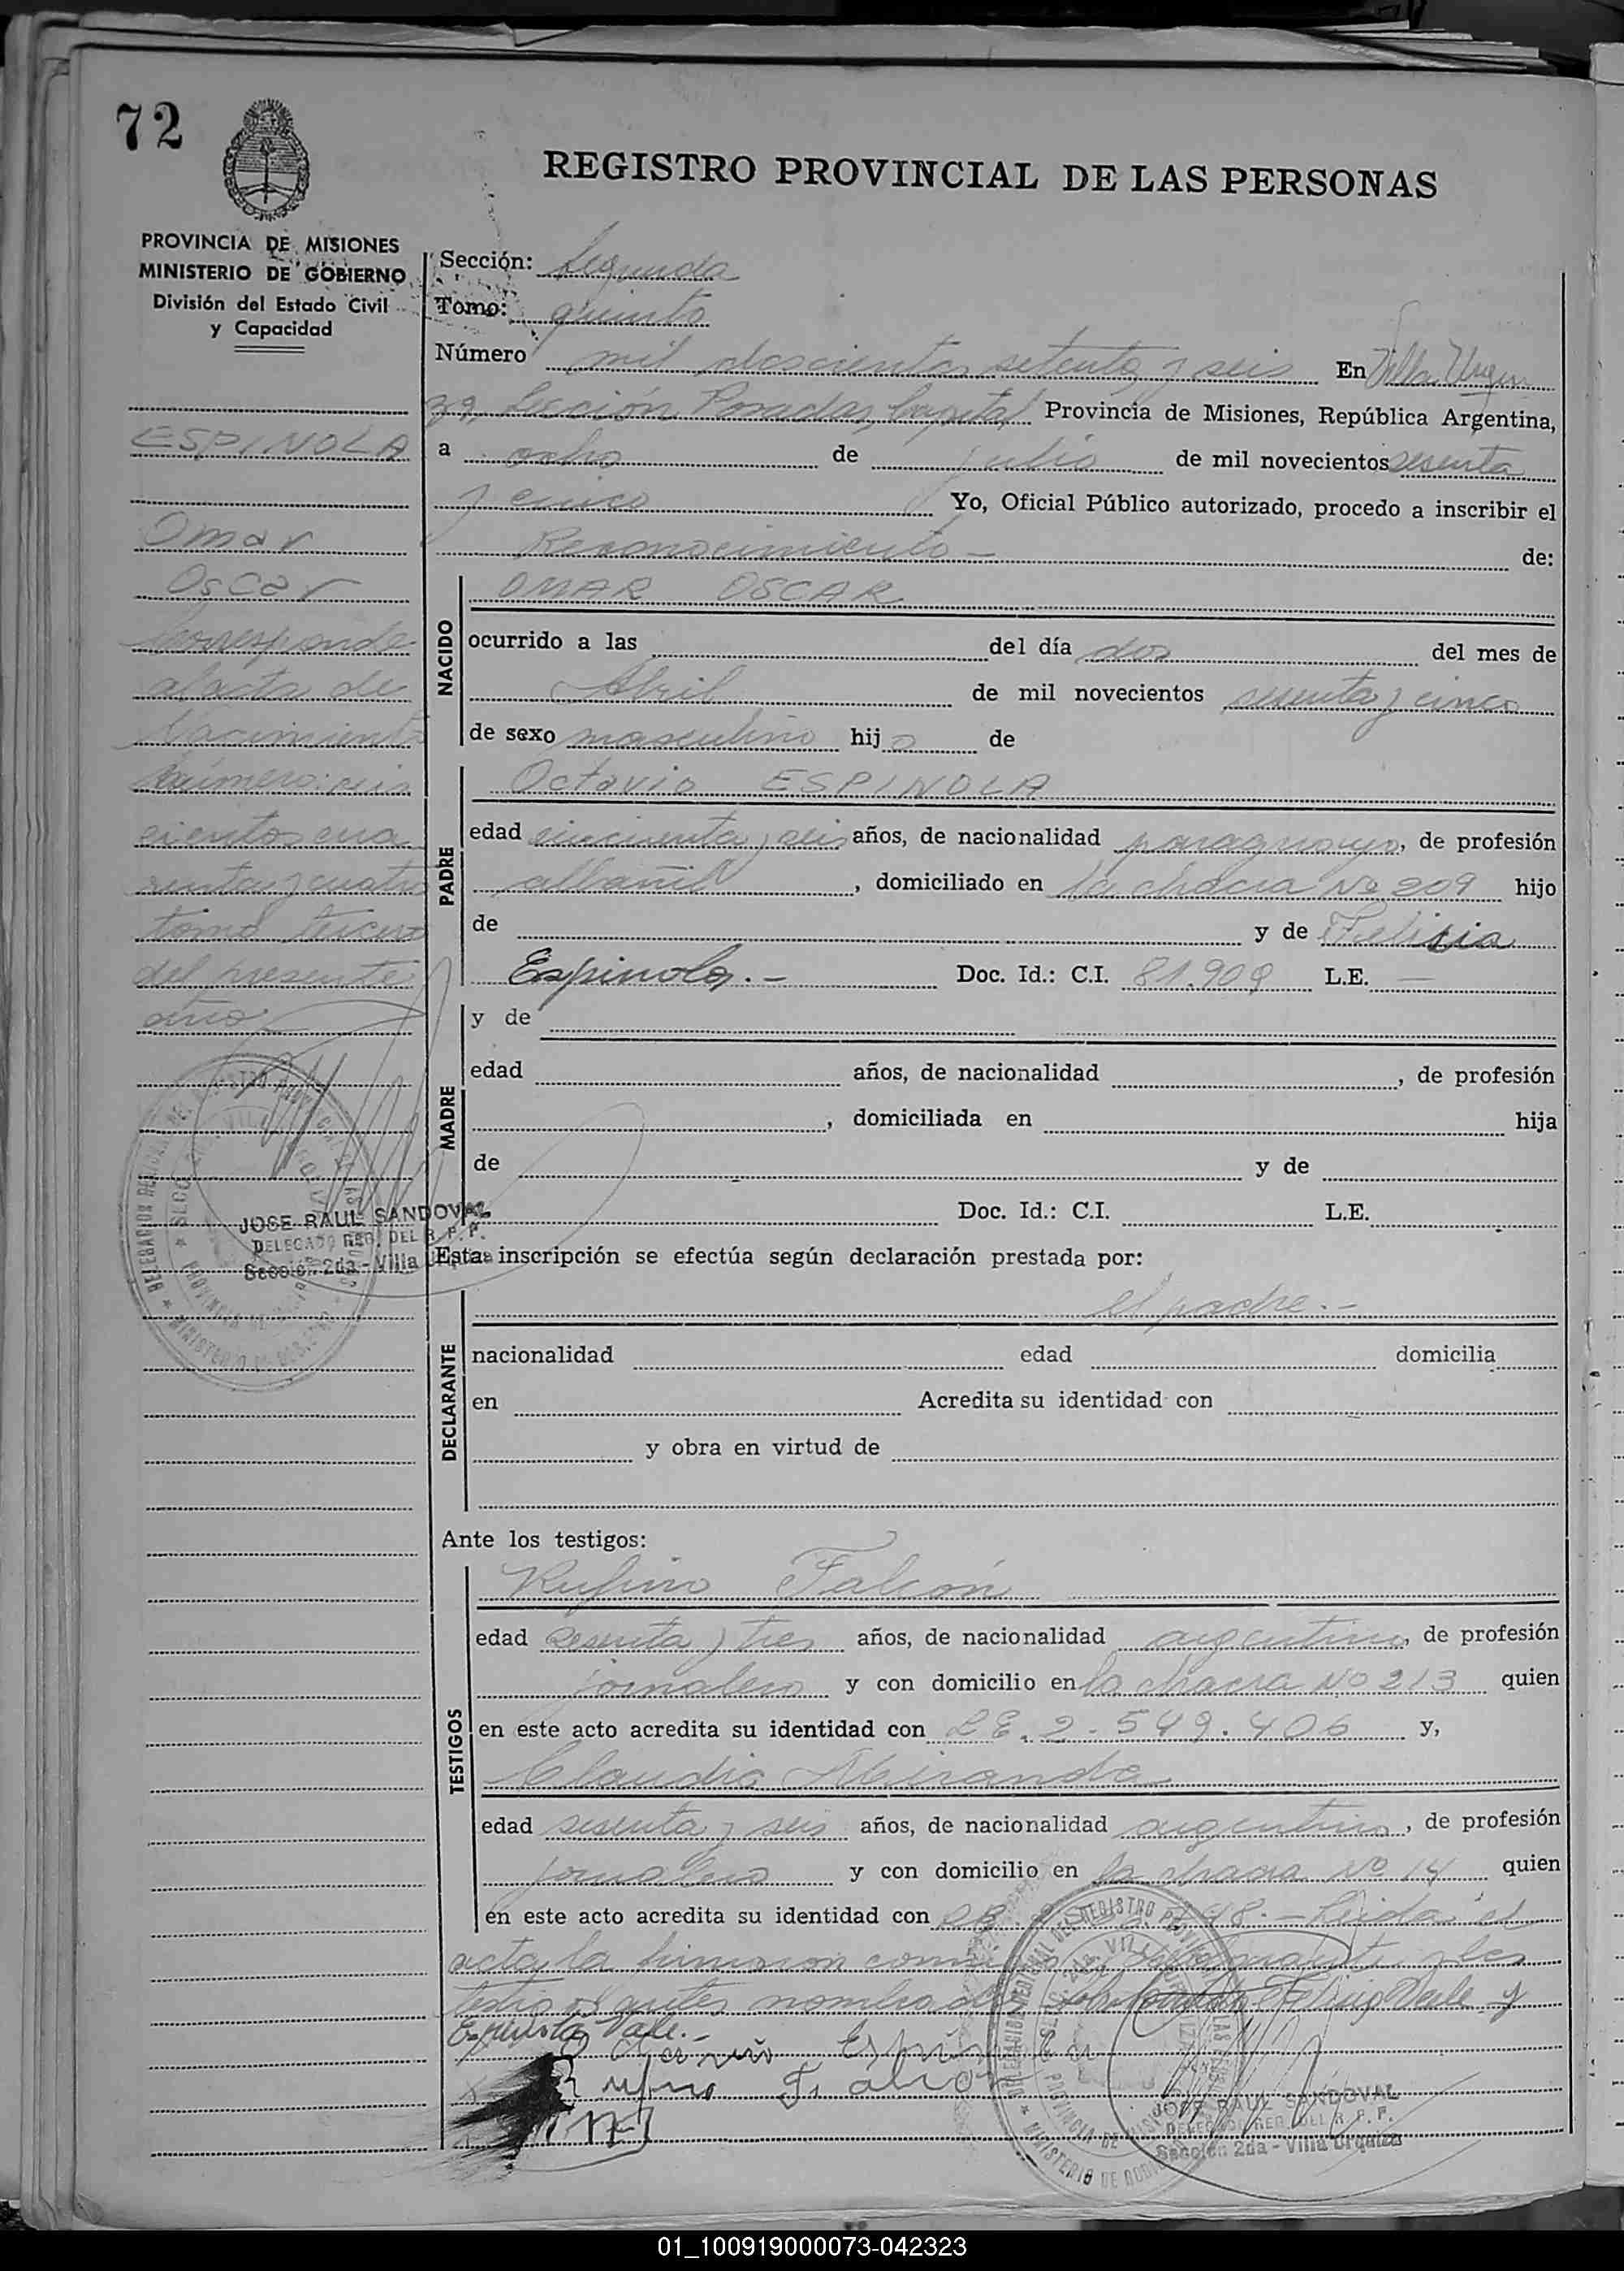 72
REGISTRO PROVINCIAL DE LAS PERSONAS
PROVINCIA DE MISIONES
MINISTERIO DE GOBIERNO
División del Estado Civil
y Capacidad
ESPINOLA
Omar
Oscar
Corresponde
al acta de
Nacimiento
número: seis
cientos cua
renta y cuatro
tomo tercero
del presente
año
JOSE RAUL SANDOVAL
DELEGADO REG. DEL R. P. P.
Sección 2da - Villa Urquiza
Sección: Segunda
Tomo: quinto
Número mil doscientos setenta y seis En Villa Urqui
za, Sección Posadas, Capital Provincia de Misiones, República Argentina,
a ocho de julio de mil novecientos sesenta
y cinco Yo, Oficial Público autorizado, procedo a inscribir el
Reconocimiento - de:
NACIDO
OMAR OSCAR
ocurrido a las del día dos del mes de
Abril de mil novecientos sesenta y cinco
de sexo masculino hijo de
PADRE
Octavio ESPINOLA
edad cincuenta y seis años, de nacionalidad paraguayo, de profesión
albañil, domiciliado en la chacra Nº 209 hijo
de y de Felisia
Espinola.- Doc. Id.: C.I. 81.909 L.E. —
MADRE
y de
edad años, de nacionalidad , de profesión
, domiciliada en hija
de y de
Doc. Id.: C.I. L.E.
Esta inscripción se efectúa según declaración prestada por:
DECLARANTE
el padre.-
nacionalidad edad domicilia
en Acredita su identidad con
y obra en virtud de
Ante los testigos:
TESTIGOS
Rufino Falcón
edad sesenta y tres años, de nacionalidad argentino, de profesión
jornalero y con domicilio en la chacra Nº 213 quien
en este acto acredita su identidad con L.E. 2.549.406 y,
Claudio Miranda
edad sesenta y seis años, de nacionalidad argentino, de profesión
jornalero y con domicilio en la chacra Nº 14 quien
en este acto acredita su identidad con 48.- Leida el
acta la firmaron y los
testigos antes nombrados Vale y
Espinola Vale.-
Espinola
Rufino Falcon
JOSE RAUL SANDOVAL
DELEGADO REG. DEL R. P. P.
Sección 2da - Villa Urquiza
01_100919000073-042323